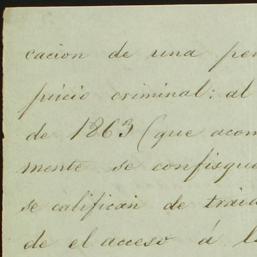 cacion de una pen
juicio criminal: al
de 1863 (que acom
mente se confisque
se califican de traid
de el acceso á l